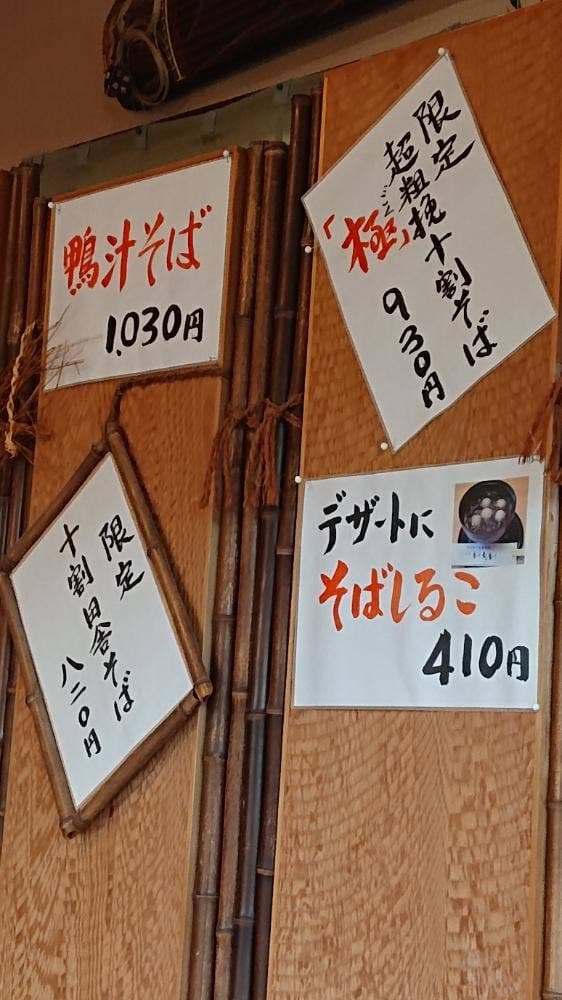 鴨汁そば
1,030円
限定
超粗挽十割そば
「極」
930円
限定
十割田舎そば
八二〇円
デザートに
そばしるこ
410円